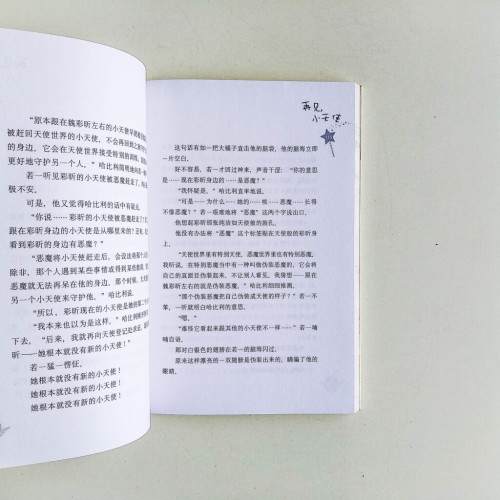 “原本跟在魏彩昕左右的小天使早就
被赶回天使世界的小天使，不会再回到
的身边，它会在天使世界接受特别的
更好地守护另一个人。”哈比利简明地
若一听见彩昕的小天使被恶魔赶走了，
极不安。
可是，他又觉得哈比利的话中有疑点，
“你说……彩昕的小天使被恶魔赶走了
跟在彩昕身边的小天使是从哪里来的？还有，
看到彩昕的身边有恶魔？”
“恶魔将小天使赶走后，会设法将那个
除非，那个人遇到某些事情或得到某些
恶魔就无法再呆在他的身边，那个时候，
另一个小天使来守护他。”哈比利说。
“所以，彩昕现在的小天使是她的第二个
“我本来也以为是这样。”哈比利
下去，“后来，我就再向天使登记处求证，
昕——她根本就没有新的小天使！”
若一猛一愣怔。
她根本就没有新的小天使！
她根本就没有新的小天使！
她根本就没有新的小天使！
再见，
小天使
这句话有如一把大锤子直击他的脑袋，他的脑海立即
一片空白。
好不容易，若一才回过神来，声音干涩：“你的意思
是……现在彩昕身边的……是恶魔？”
“我怀疑是。”哈比利直率地说。
“可是……为什么……她的……呃……恶魔……长得
不像恶魔？”若一艰难地将“恶魔”这两个字说出口。
他想起彩昕那张纯洁如天使的脸庞。
他没有办法将“恶魔”这个标签贴在天使般的彩昕身
上。
“天使世界里有特别天使，恶魔世界里也有特别恶魔。
我听说，在特别恶魔当中有一种叫他伪装恶魔的，它会将
自己的真面目伪装起来，不让别人看见。我猜想……跟在
魏彩昕左右的就是伪装恶魔。”哈比利细细推测。
“那个伪装恶魔把自己伪装成天使的样子？”若一不
笨，一听就明白哈比利的意思。
“嗯。”
“难怪它看起来跟其他的小天使不一样……”若一喃
喃自语。
那对白银色的翅膀在若一的脑海闪过。
原来这样漂亮的一双翅膀是伪装出来的，瞒骗了他的
眼睛。